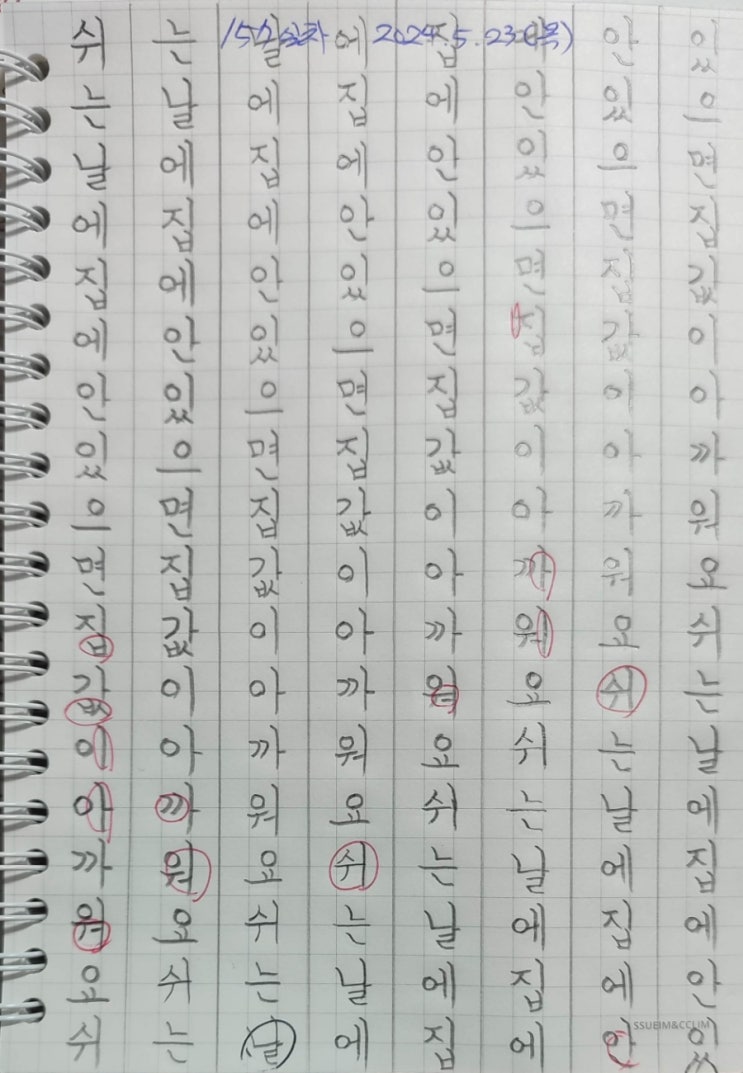 152일차 2024. 5. 23(목)
쉬는날에집에안있이면집값이아까워요쉬
는날에집에안있이면집값이아까워요쉬는
날에집에안있이면집값이아까워요쉬는날
에집에안있이면집값이아까워요쉬는날에
집에안있이면집값이아까워요쉬는날에집
에안있이면집값이아까워요쉬는날에집에
안있이면집값이아까워요쉬는날에집에안
있이면집값이아까워요쉬는날에집에안있
SSUEIM&CCLIM